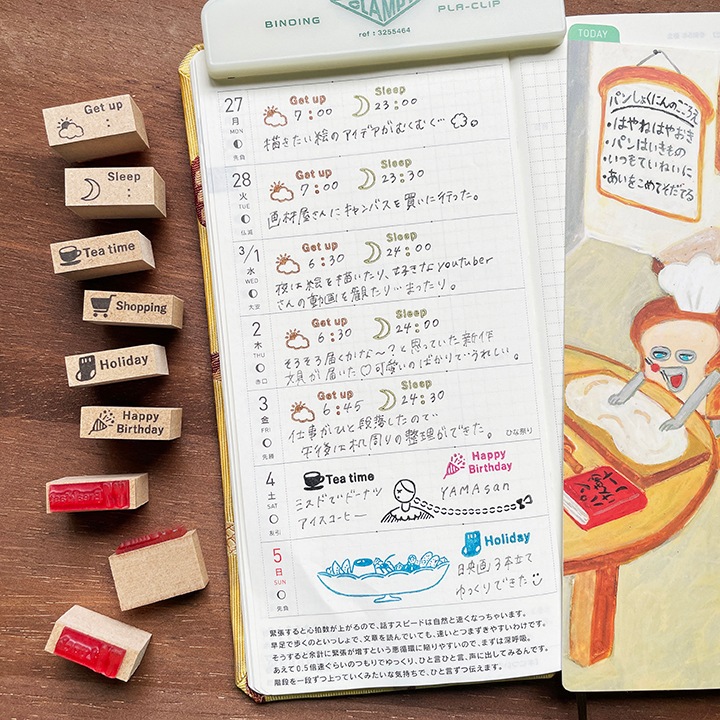 BINDING
CLAMPY
PLA-CLIP
ref : 3255464
Get up
:
Sleep
:
Tea time
Shopping
Holiday
Happy
Birthday
27
月
MON
先負
Get up
7:00
Sleep
23:00
描きたい絵のアイデアがむくむく…
28
火
TUE
仏滅
Get up
7:00
Sleep
23:30
画材屋さんにキャンバスを買いに行った。
3/1
水
WED
大安
Get up
6:30
Sleep
24:00
夜は絵を描いたり、好きなyoutuber
さんの動画を観たり…まったり。
2
木
THU
赤口
Get up
6:30
Sleep
24:00
そろそろ届くかな〜?と思っていた新作
文具が届いた♡可愛いのばかりでうれしい。
3
金
FRI
先勝
Get up
6:45
Sleep
24:30
仕事がひと段落したので…
午後は机周りの整理ができた。
ひな祭り
4
土
SAT
友引
Tea time
ミスドでドーナツ
アイスコーヒー
Happy
Birthday
YAMAsan
5
日
SUN
先負
Holiday
日映画3本立て
ゆっくりできた
緊張すると心拍数が上がるので、話すスピードは自然と速くなっちゃいます。
早足で歩くのといっしょで、文章を読んでいても、速いとつまずきやすいわけです。
そうすると余計に緊張が増すという悪循環に陥りやすいので、まずは深呼吸。
あえて0.5倍速ぐらいのつもりでゆっくり、ひと言ひと言、声に出してみるんです。
階段を一段ずつ上っていくみたいな気持ちで、ひと言ずつ伝えます。
TODAY
パンしょくにんのこころえ
・はやねはやおき
・パンはいきもの
・いつもていねいに
・あいをこめてそだてる